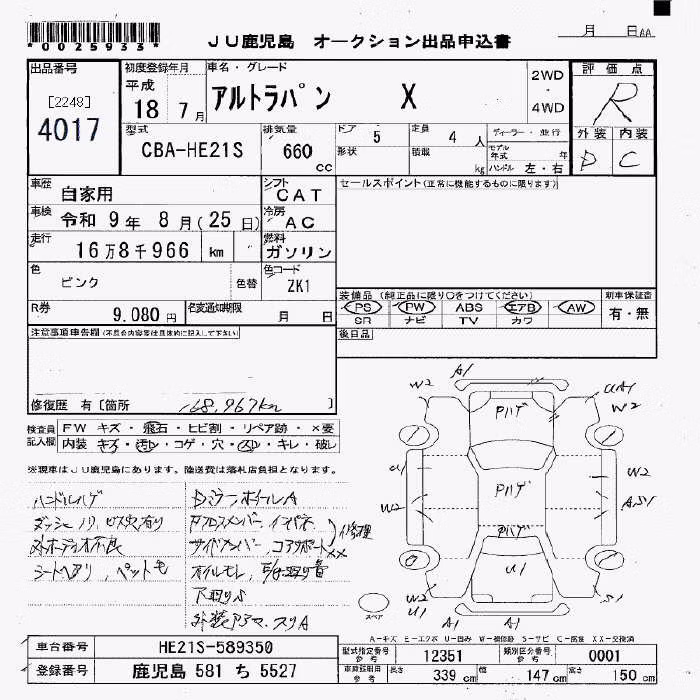 *0025933*
JU鹿児島 オークション出品申込書
月 日AA
出品番号
[2248]
4017
初度登録年月
平成
18 7月
車名・グレード
アルトラパン X
2WD
・
4WD
評価点
R
外装 内装
D C
型式
CBA-HE21S
排気量
660
cc
ドア 5
形状
定員 4 人
積載 kg
ディーラー・並行
モデル年式 年
ハンドル 左・右
車歴 自家用
シフト CAT
セールスポイント(正常に機能するものに限ります)
車検 令和 9年 8月(25日)
冷房 AC
走行 16万8千966 km
燃料 ガソリン
色 ピンク
色替
色コード ZK1
装備品(純正品に限り○をつけてください)
新車保証書
PS PW ABS エアB AW
SR ナビ TV カワ
有・無
R券 9.080円
名変通知期限 月 日
後日品
注意事項申告欄(不具合内容等は具体的に記入して下さい)
修復歴 有〔箇所 168,967km 〕
検査員記入欄
FW キズ・飛石・ヒビ割・リペア跡・×要
内装 キズ・汚れ・コゲ・穴・スレ・キレ・破レ
※現車はJU鹿児島にあります。陸送費は落札店負担となります。
ハンドルハゲ
ダッシュノリ、ビス穴有り
オーディオ不良
シートヘタリ、ペット毛
Dマフラーホイール A
Fクロスメンバー、インパネ
サイドメンバー、コアサポート××
修理
オイルモレ
下廻りS
A1
W2
Pハゲ
UA1
W2
U1
Pハゲ
W2
W2
AS1
Pハゲ
U1
W2
U1
W2
A1
A1
スペア
A-キズ E-エクボ U-凹み W-補修跡 S-サビ C-腐食 XX-交換済
車台番号 HE21S-589350
型式指定番号 参考 12351
類別区分番号 参考 0001
登録番号 鹿児島 581 ち 5527
車検証記載 参考
長さ 339 cm
幅 147 cm
高さ 150 cm